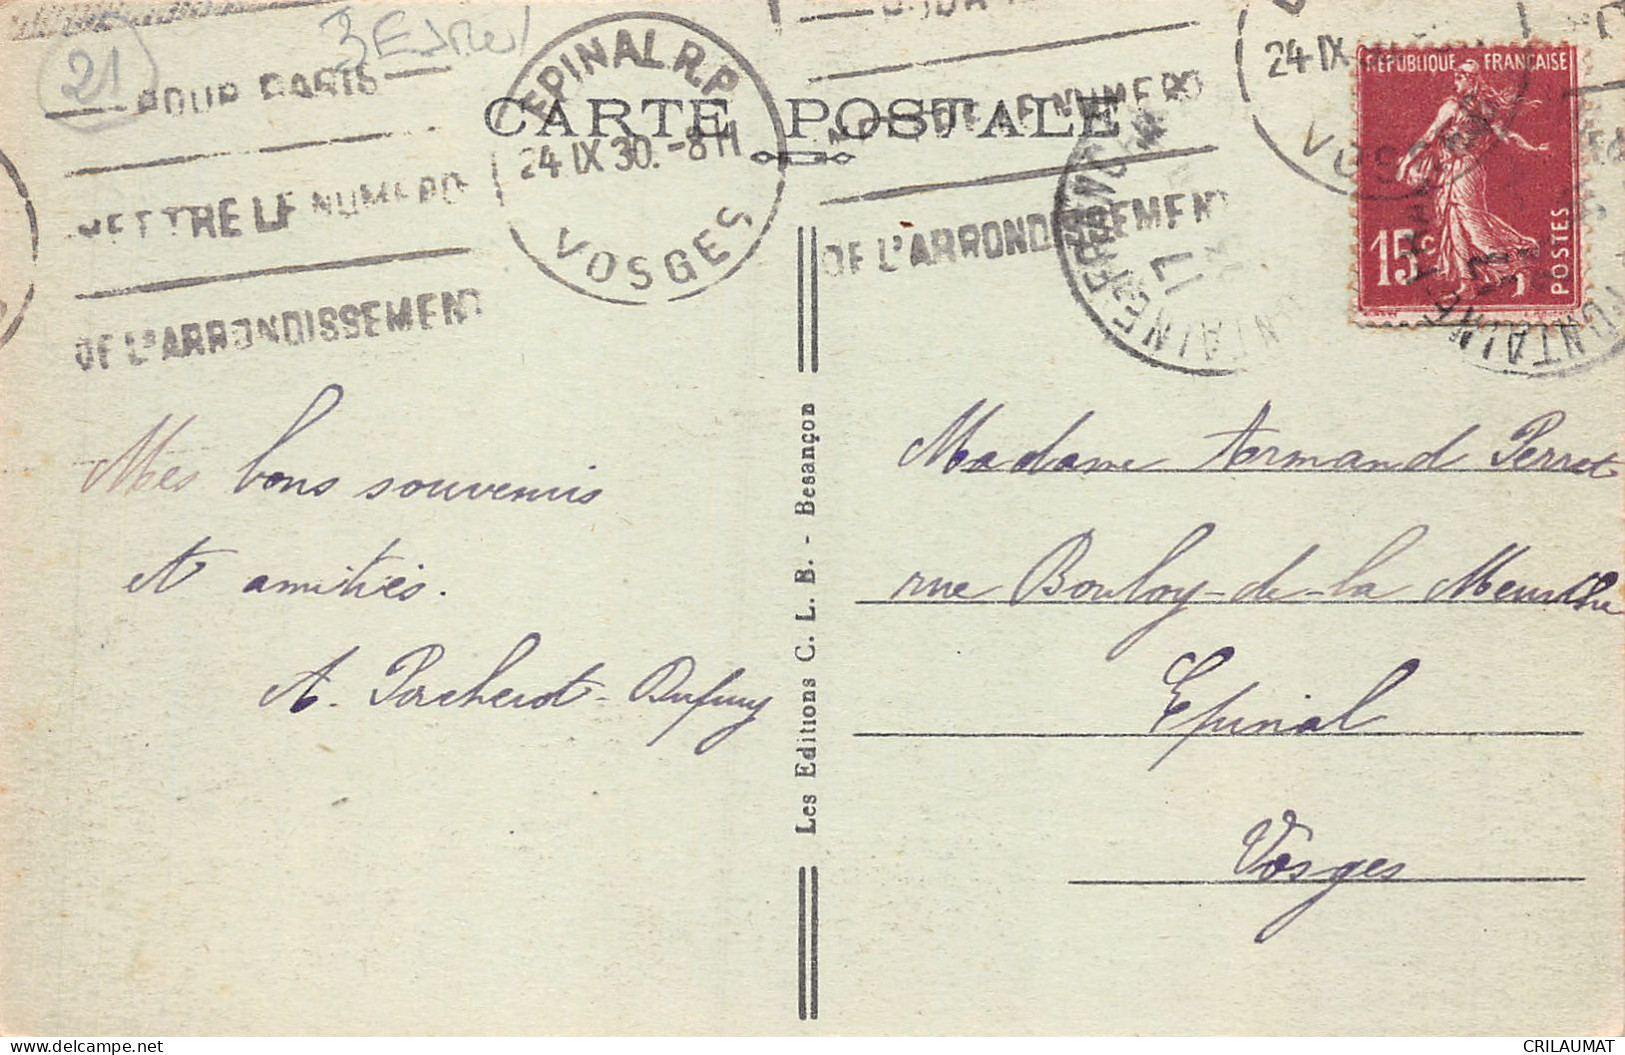 21
POUR PARIS
METTRE LE NUMERO
DE L'ARRONDISSEMENT
EPINAL R.P.
24 IX 30.-8H
VOSGES
CARTE POSTALE
METTRE LE NUMERO
DE L'ARRONDISSEMENT
24 IX
VOSGES
REPUBLIQUE FRANÇAISE
15c
POSTES
17
Mes bons souvenirs
et amitiés.
A. Porcherot-Dufuuy
Les Editions C. L. B. - Besançon
Madame Armand Perret
rue Boulay-de-la Meurthe
Epinal
Vosges
CRILAUMAT